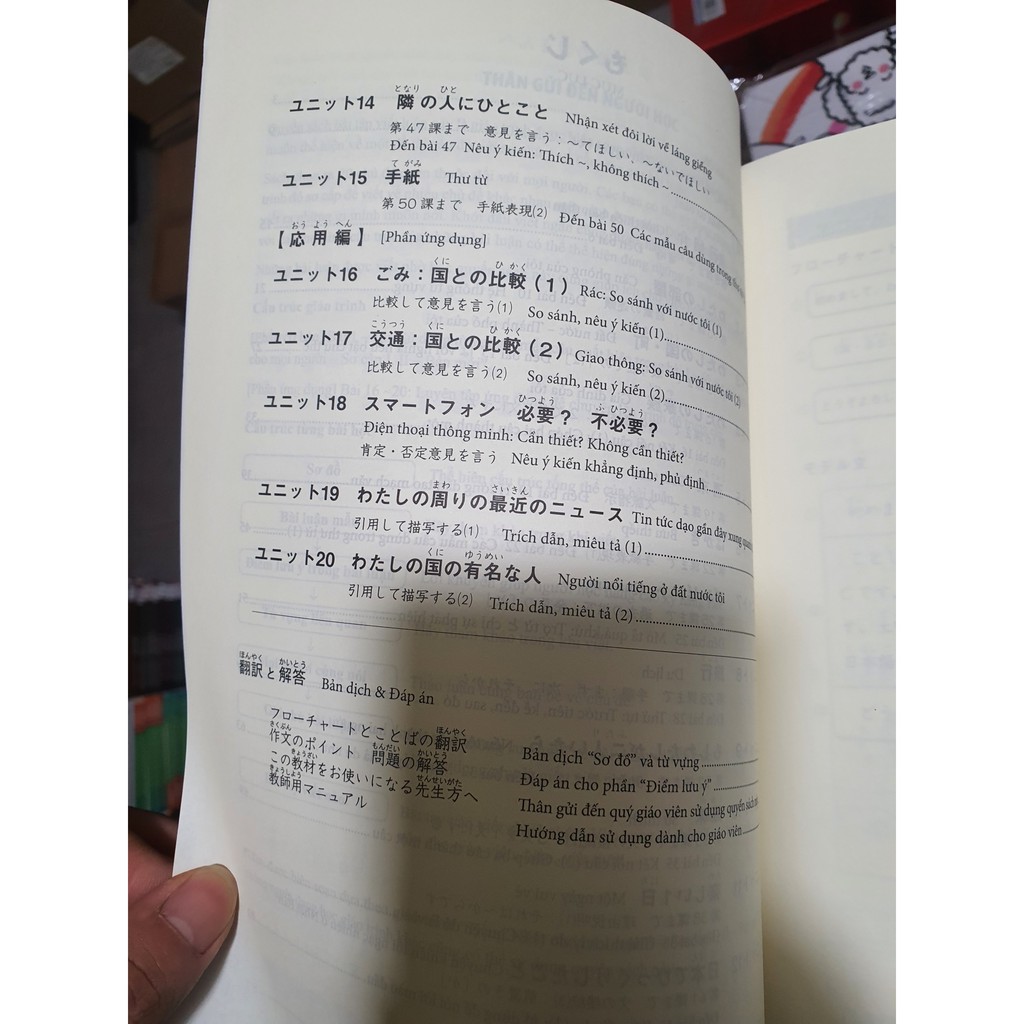 ユニット14 隣の人にひとこと Nhận xét đôi lời về láng giềng
となり ひと
第47課まで 意見を言う：～てほしい、～ないでほしい
Đến bài 47 Nêu ý kiến: Thích ~, không thích ~
ユニット15 手紙 Thư từ
て がみ
第50課まで 手紙表現(2) Đến bài 50 Các mẫu câu dùng trong
【応用編】 [Phần ứng dụng]
おう よう へん
ユニット16 ごみ：国との比較(1) Rác: So sánh với nước tôi (1)
くに ひ かく
比較して意見を言う(1) So sánh, nêu ý kiến (1)
ユニット17 交通：国との比較(2) Giao thông: So sánh với nước tôi (2)
こうつう くに ひ かく
比較して意見を言う(2) So sánh, nêu ý kiến (2)
ユニット18 スマートフォン 必要？ 不必要？
ひつよう ふ ひつよう
Điện thoại thông minh: Cần thiết? Không cần thiết?
肯定・否定意見を言う Nêu ý kiến khẳng định, phủ định
ユニット19 わたしの周りの最近のニュース Tin tức dạo gần đây xung quanh
まわ さいきん
引用して描写する(1) Trích dẫn, miêu tả (1)
ユニット20 わたしの国の有名な人 Người nổi tiếng ở đất nước tôi
くに ゆうめい
引用して描写する(2) Trích dẫn, miêu tả (2)
翻訳と解答 Bản dịch & Đáp án
ほんやく かいとう
フローチャートとことばの翻訳 Bản dịch “Sơ đồ” và từ vựng
ほんやく
作文のポイント 問題の解答 Đáp án cho phần “Điểm lưu ý”
さくぶん もんだい かいとう
この教材をお使いになる先生方へ Thân gửi đến quý giáo viên sử dụng quyển sách
きょうざい せんせいがた
教師用マニュアル Hướng dẫn sử dụng dành cho giáo viên
きょうしよう